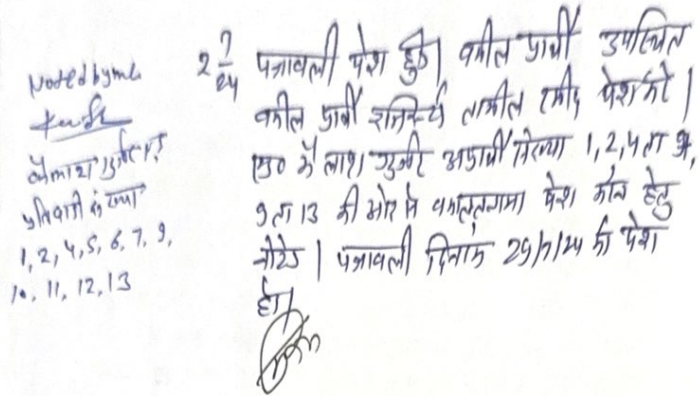 Noted by me
प्रतिवादी संख्या
1, 2, 4, 5, 6, 7, 9,
10, 11, 12, 13
2 7/24 पत्रावली पेश हुई। वकील प्रार्थी उपस्थित
वकील प्रार्थी रजिस्टर्ड तामील रसीद पेश की।
अप्रार्थी संख्या 1, 2, 4 ता
9 ता 13 की ओर से वकालतनामा पेश करने हेतु
नोटेड। पत्रावली दिनांक 29/7/24 को पेश
हो।